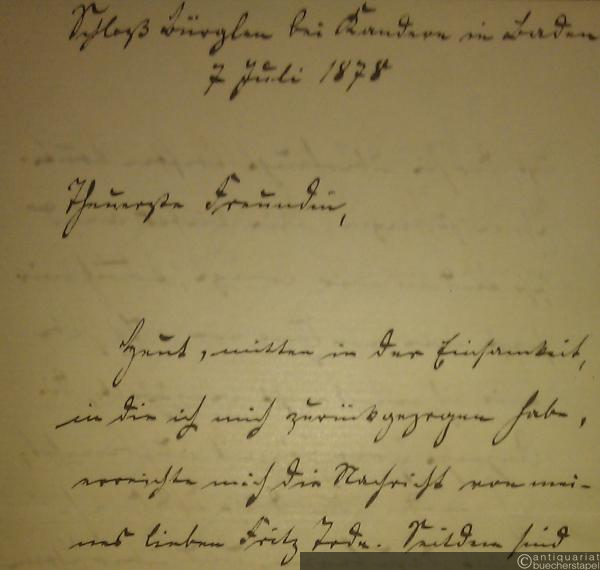 Schloß Bürglen bei Kandern in Baden
7 Juli 1878
Theuerste Freundin,
Heut, mitten in der Einsamkeit,
in die ich mich zurückgezogen habe,
erreichte mich die Nachricht von mei-
nes lieben Fritz Tode. Seitdem sind
©antiquariat
buecherstapel